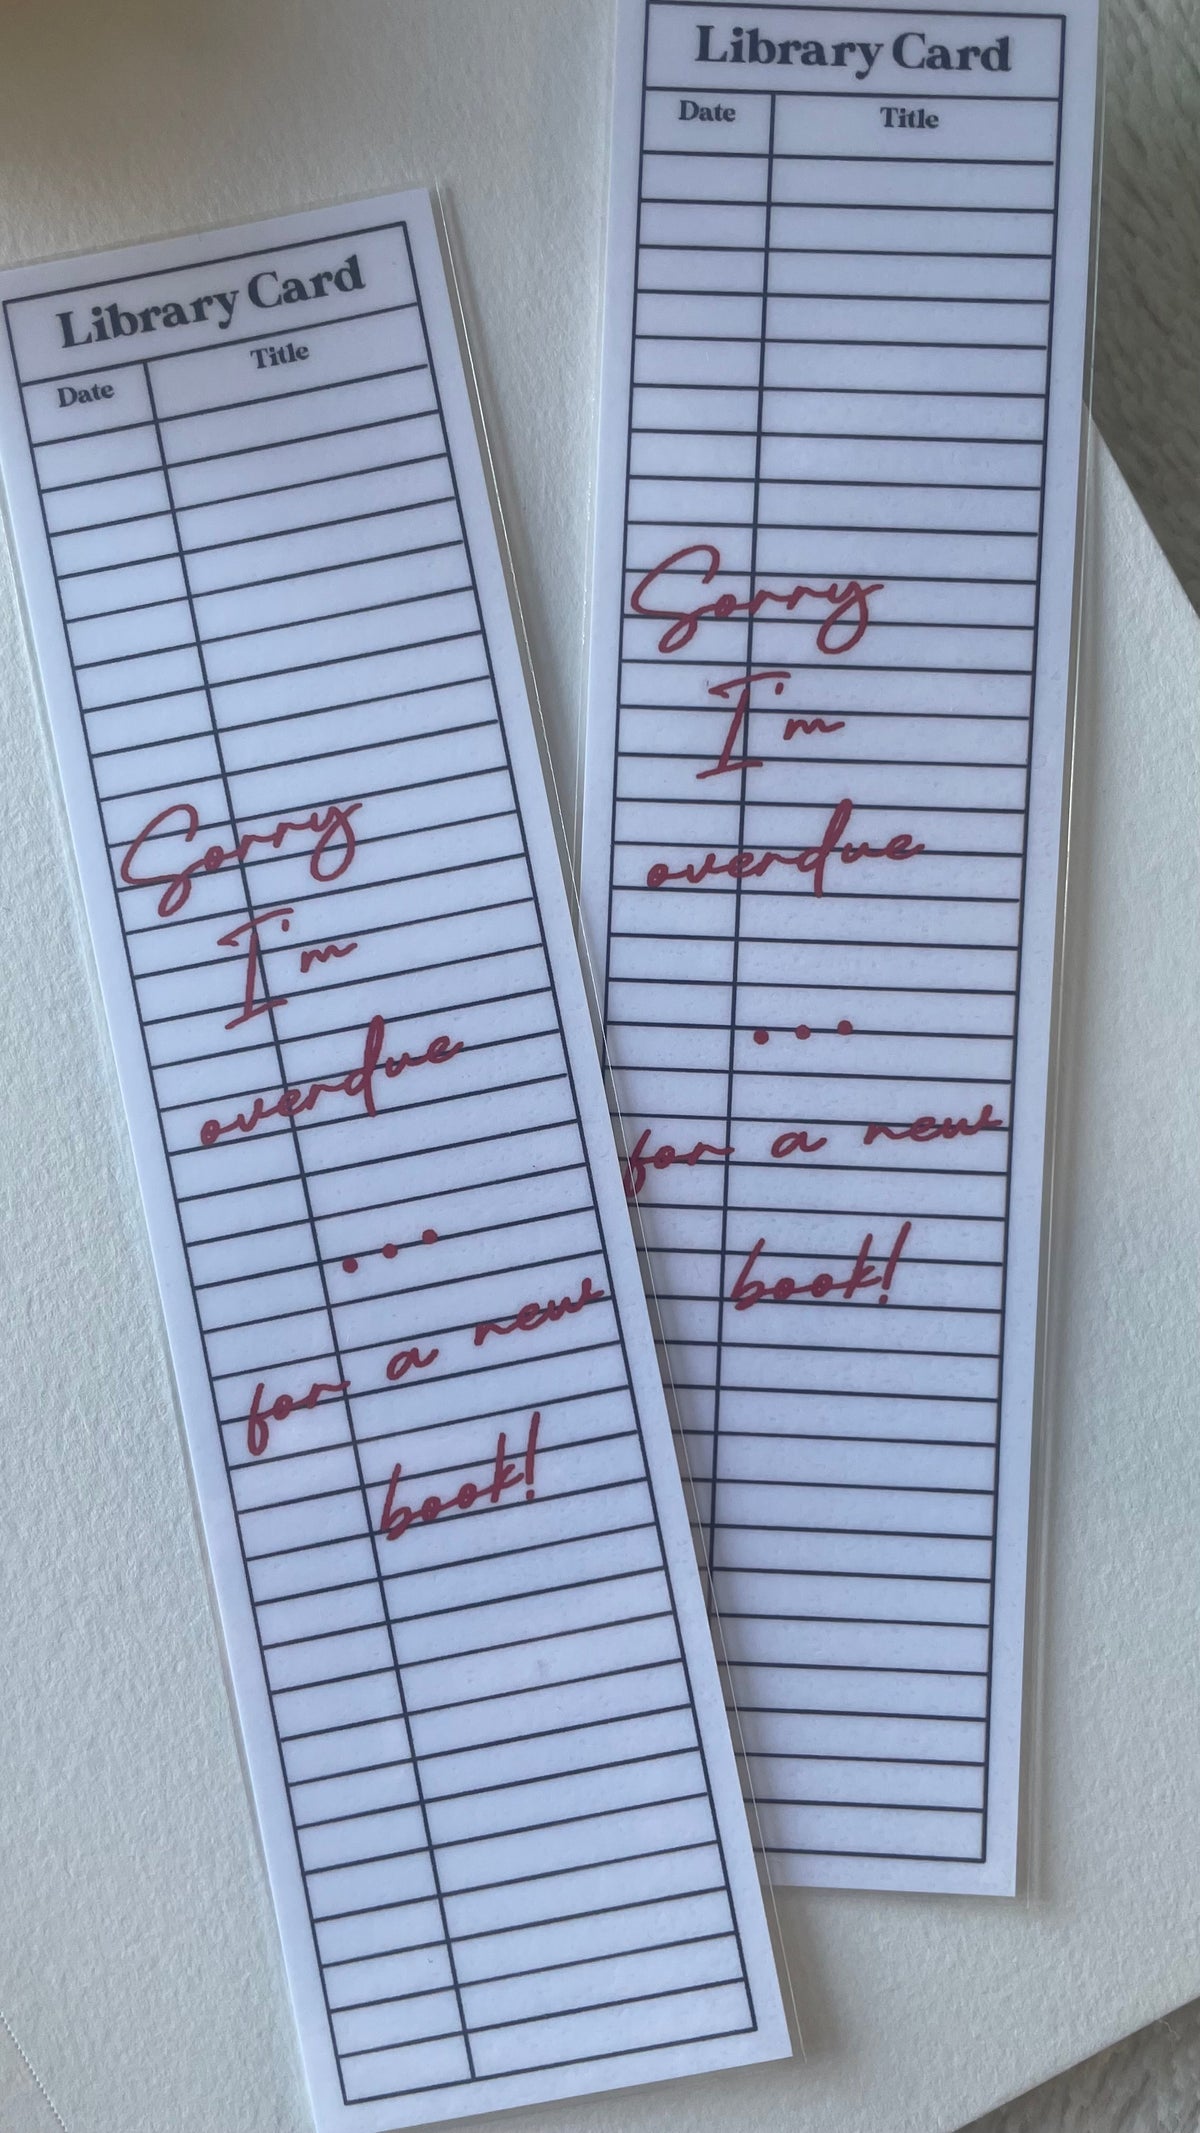 Library Card
Date Title
Sorry
I'm
overdue
...
for a new
book!
Library Card
Date Title
Sorry
I'm
overdue
...
for a new
book!